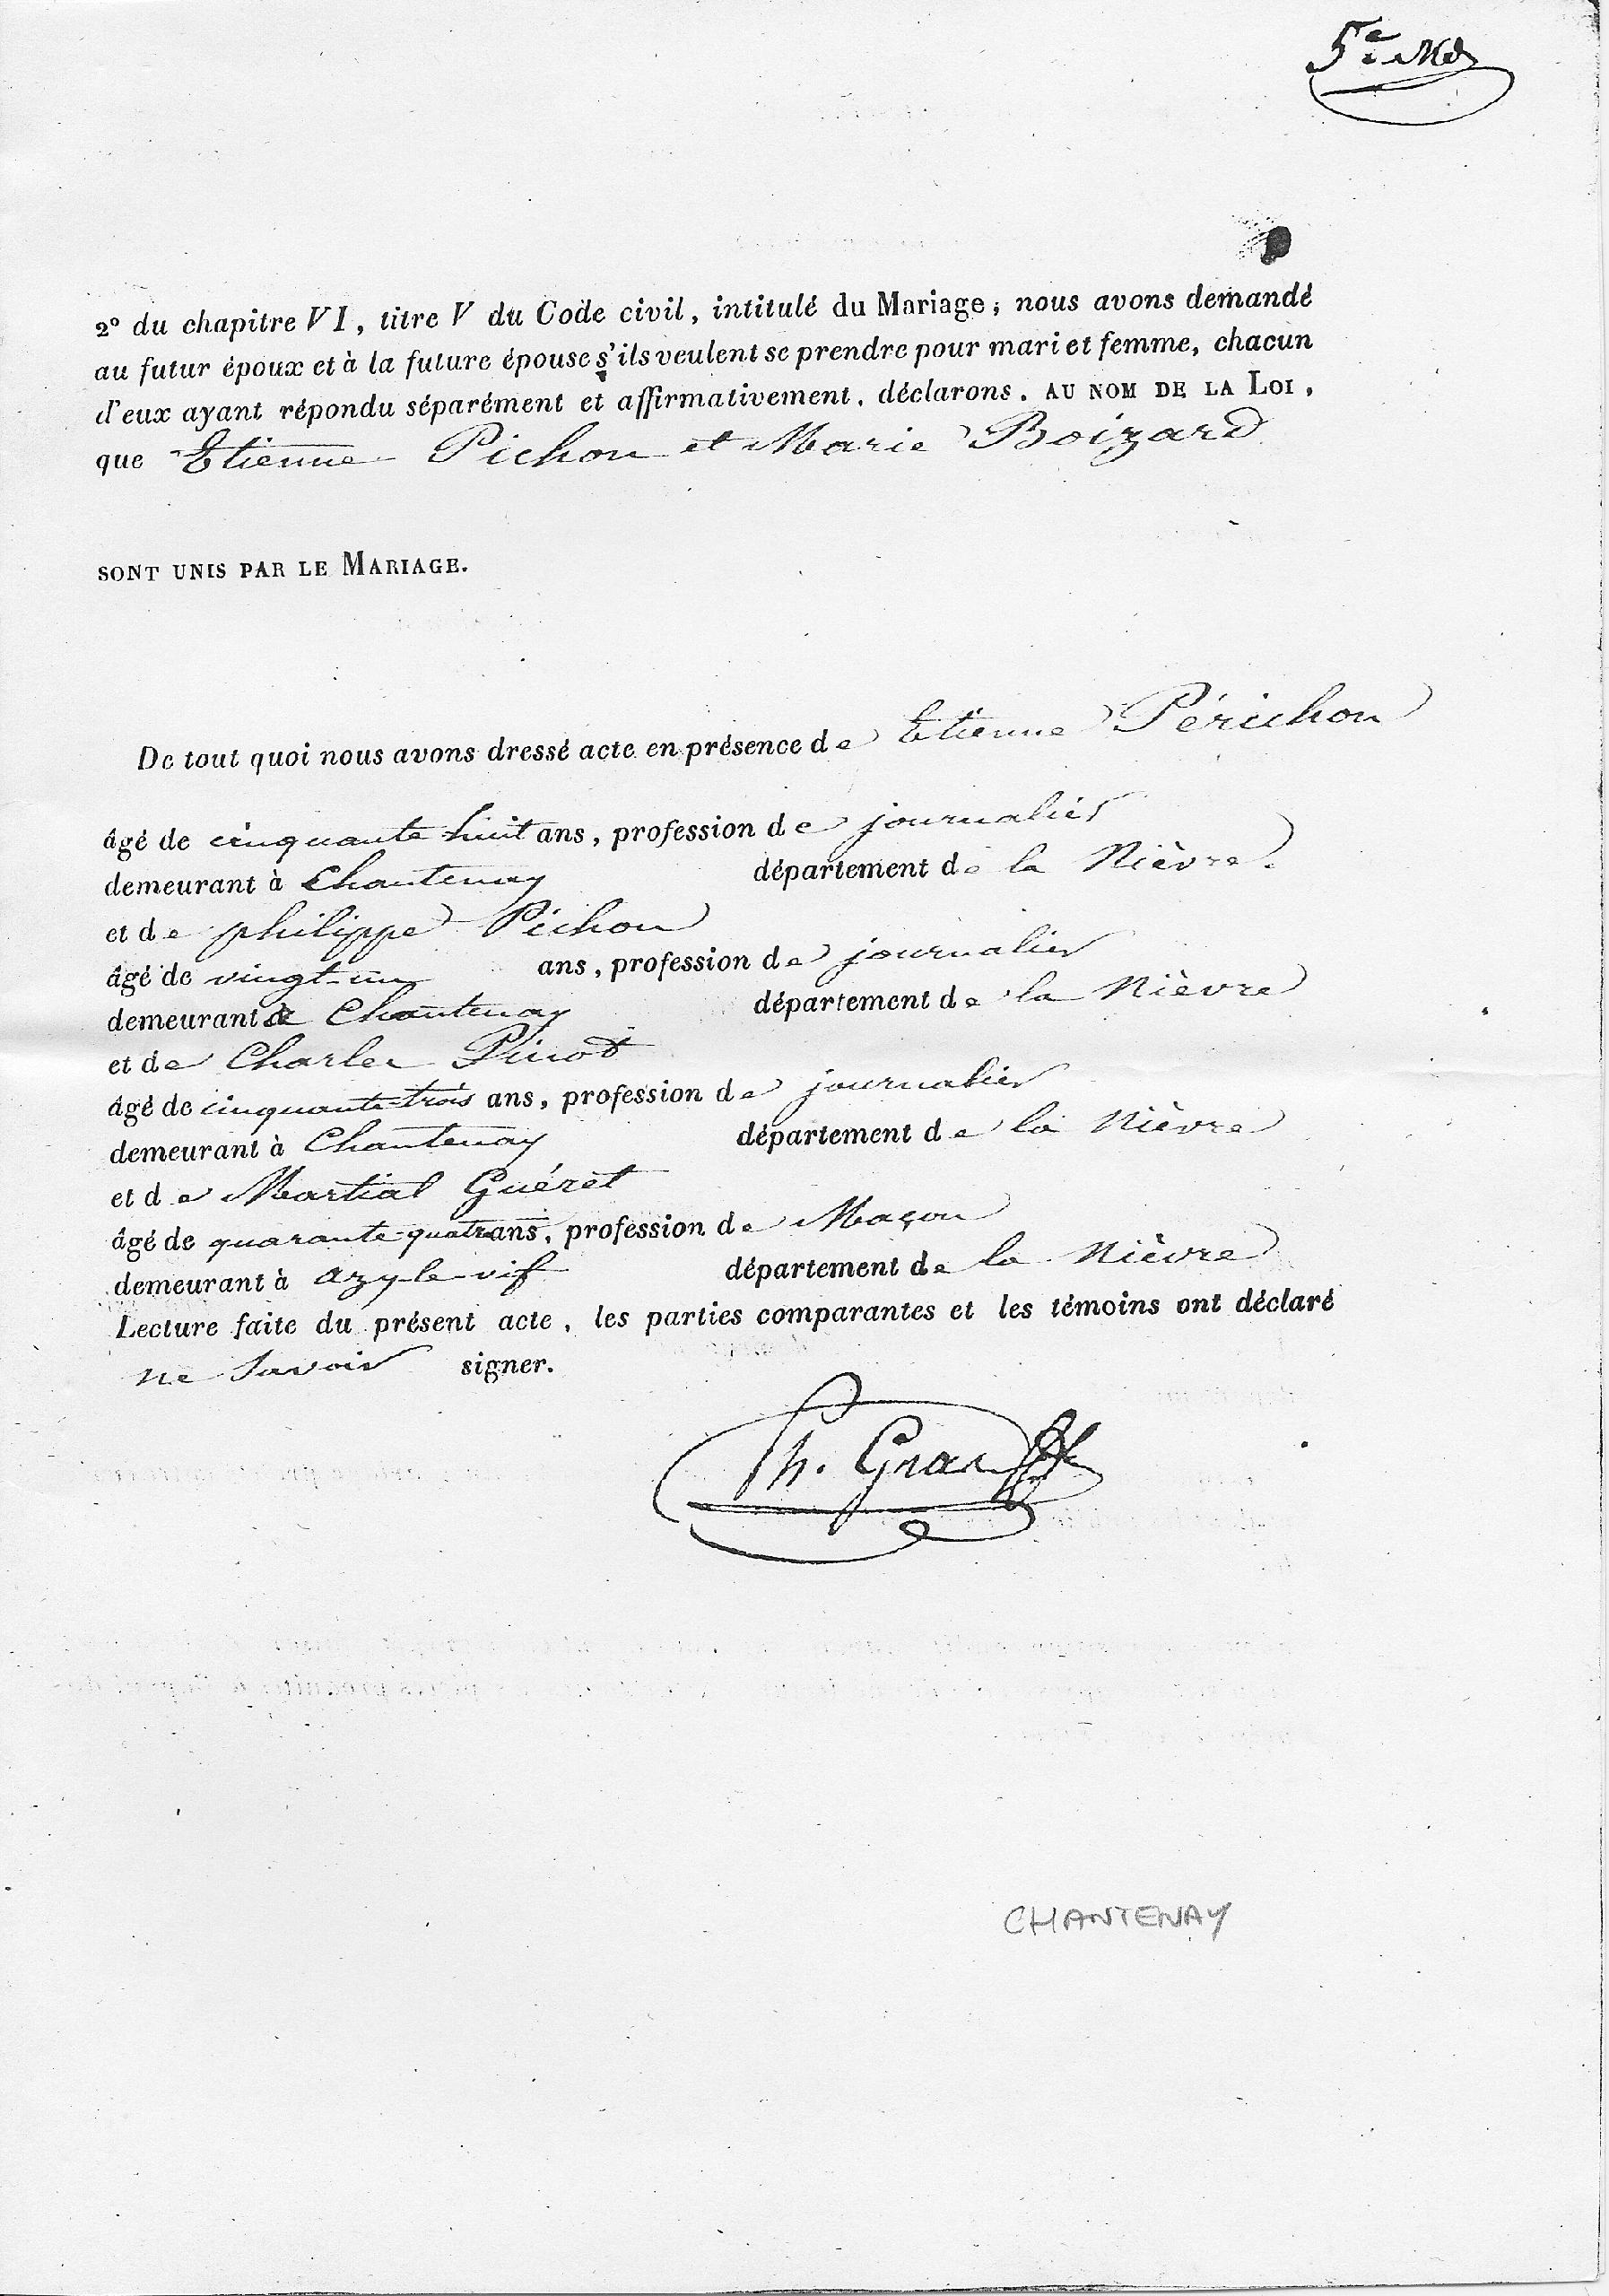 5e
2º du chapitre VI, titre V du Code civil, intitulé du Mariage; nous avons demandé
au futur époux et à la future épouse s'ils veulent se prendre pour mari et femme, chacun
d'eux ayant répondu séparément et affirmativement, déclarons, AU NOM DE LA LOI,
que Etienne Pichon et Marie Boizard
SONT UNIS PAR LE MARIAGE.
De tout quoi nous avons dressé acte en présence de Etienne Périchon
âgé de cinquante huit ans, profession de journalier
demeurant à Chantenay département de la Nièvre
et de philippe Pichon
âgé de vingt-un ans, profession de journalier
demeurant à Chantenay département de la Nièvre
et de Charles Pinot
âgé de cinquante-trois ans, profession de journalier
demeurant à Chantenay département de la Nièvre
et de Martial Guéret
âgé de quarante-quatre ans, profession de Maçon
demeurant à azy-le-vif département de la Nièvre
Lecture faite du présent acte, les parties comparantes et les témoins ont déclaré
ne Savoir signer.
CHANTENAY